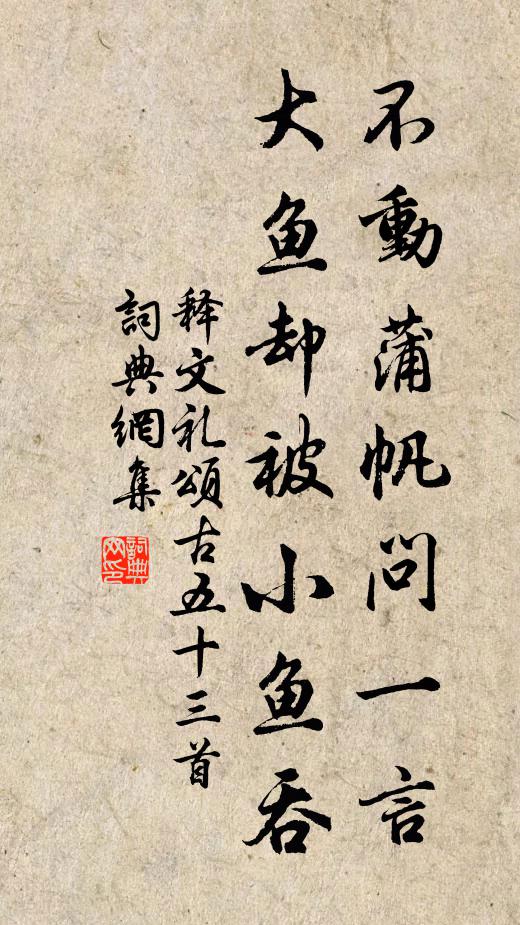 不動蒲帆問一言
大鱼却被小鱼吞
释文礼頌古五十三首
詞典網集
詞典网印